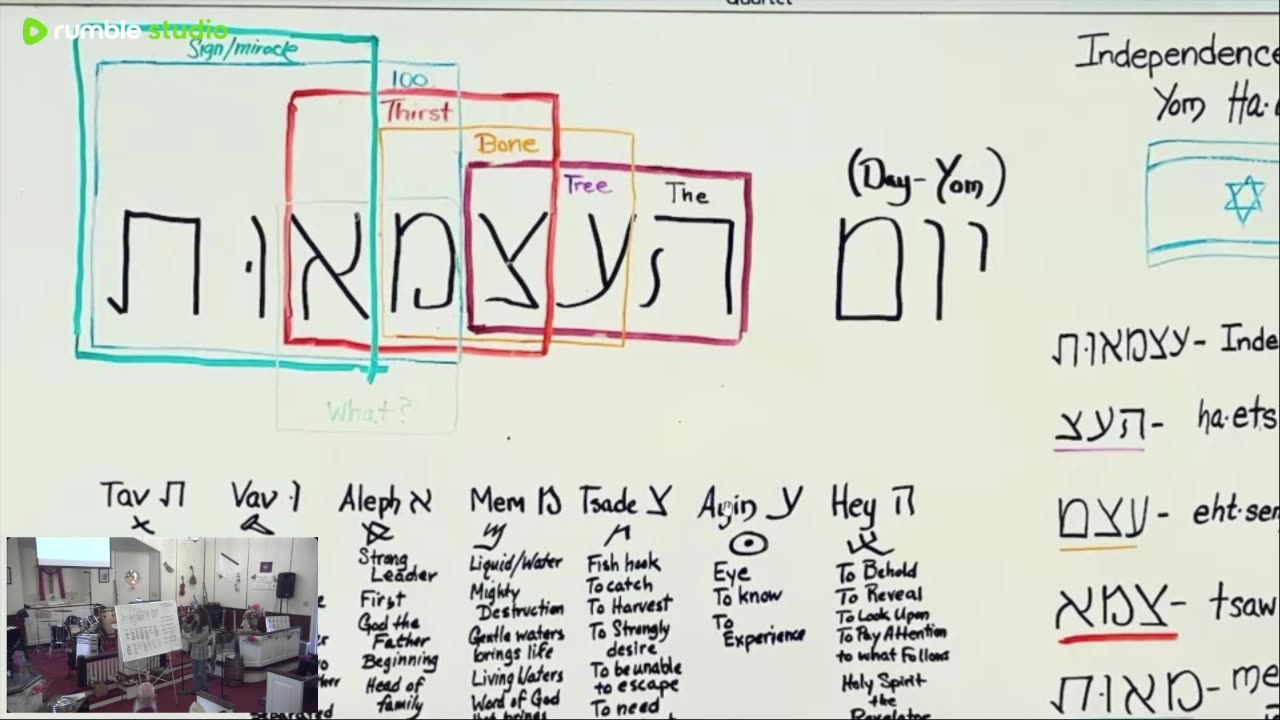 Quartet
rumble studio
Sign/miracle
100
Thirst
Bone
Tree
The
העצמאות
What?
(Day-Yom)
יום
Independence
Yom Ha.
עצמאות- Inde
העצ- ha.ets
עצמ- eht.sem
צמא- tsaw
מאות- me
Tav ת
Vav ו
Aleph א
Strong
Leader
First
God the
Father
Beginning
Head of
family
Mem מ
Liquid/Water
Mighty
Destruction
Gentle waters
brings life
Living Waters
Word of God
that brings
Tsade צ
Fish hook
To catch
To Harvest
To Strongly
desire
To be unable
to escape
To need
Ayin ע
Eye
To know
To
Experience
Hey ה
To Behold
To Reveal
To Look Upon
To Pay Attention
to what Follows
Holy Spirit
the
Revelator